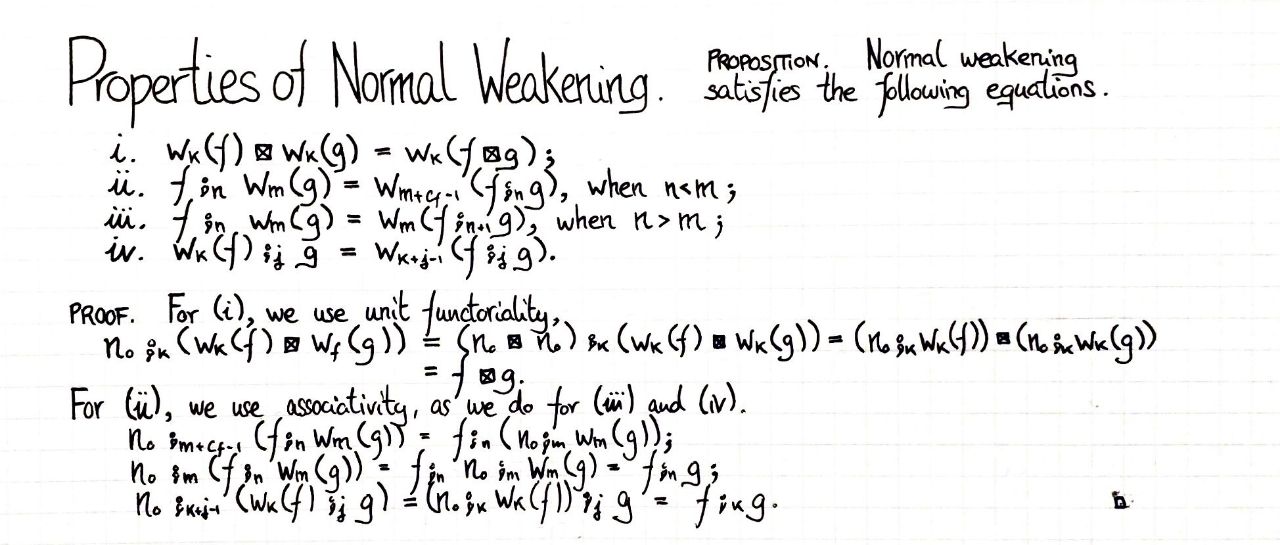 Properties of Normal Weakening.
PROPOSITION. Normal weakening
satisfies the following equations.
i. Wₖ(f) ⊠ Wₖ(g) = Wₖ(f ⊠ g);
ii. f ⨟ₙ Wₘ(g) = W_{m+cf-1}(f ⨟ₙ g), when n<m;
iii. f ⨟ₙ Wₘ(g) = Wₘ(f ⨟ₙ₊₁ g), when n>m;
iv. Wₖ(f) ⨟ⱼ g = W_{k+j-1}(f ⨟ⱼ g).
PROOF. For (i), we use unit functoriality,
n₀ ⨟ₖ (Wₖ(f) ⊠ W_f(g)) = (n₀ ⊠ n₀) ⨟ₖ (Wₖ(f) ⊠ Wₖ(g)) = (n₀ ⨟ₖ Wₖ(f)) ⊠ (n₀ ⨟ₖ Wₖ(g))
= f ⊠ g.
For (ii), we use associativity, as we do for (iii) and (iv).
n₀ ⨟_{m+cf-1} (f ⨟ₙ Wₘ(g)) = f ⨟ₙ (n₀ ⨟ₘ Wₘ(g));
n₀ ⨟ₘ (f ⨟ₙ Wₘ(g)) = f ⨟ₙ n₀ ⨟ₘ Wₘ(g) = f ⨟ₙ g;
n₀ ⨟_{k+j-1} (Wₖ(f) ⨟ⱼ g) = (n₀ ⨟ₖ Wₖ(f)) ⨟ⱼ g = f ⨟ₖ g.